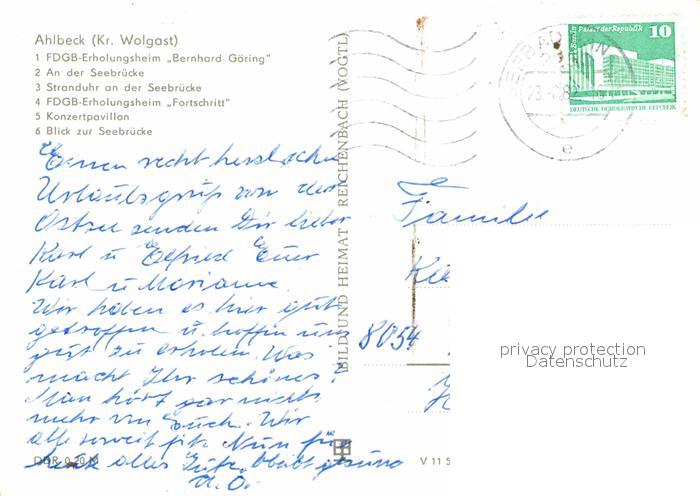 Ahlbeck (Kr. Wolgast)
1 FDGB-Erholungsheim „Bernhard Göring"
2 An der Seebrücke
3 Stranduhr an der Seebrücke
4 FDGB-Erholungsheim „Fortschritt"
5 Konzertpavillon
6 Blick zur Seebrücke
Einen recht herzlichen
Urlaubsgruß von der
Ostsee senden Dir lieber
Karl u Elfried Euer
Karl u Marianne.
Wir haben es hier gut
getroffen u. hoffen uns
gut zu erholen. Was
macht Ihr schönes?
Man hört gar nichts
mehr von Euch. Wir
alle soweit fit. Nun für
heute alles Gute, bleibt gesund
DDR 0,20 M
BILD UND HEIMAT REICHENBACH (VOGTL)
V 11 5
SEEBAD
e
Berlin, Palast der Republik
10
DEUTSCHE DEMOKRATISCHE REPUBLIK
Familie
8054
privacy protection
Datenschutz